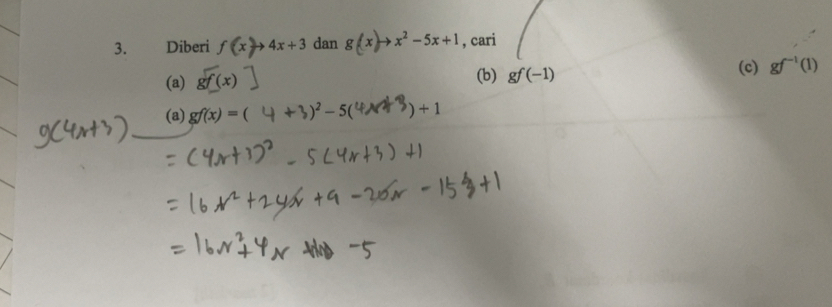 3. Diberi f(x)→ 4x+3 dan g(x)→ x² − 5x+1, cari
(a) g[f(x)] (b) gf(−1) (c) gf⁻¹(1)
(a) gf(x) = ( 4 +3)² − 5(4x+3) + 1
g(4x+3)
= (4x+3)² - 5(4x+3) +1
= 16x² + 24x + 9 - 20x - 15 +1
= 16x² + 4x - 5